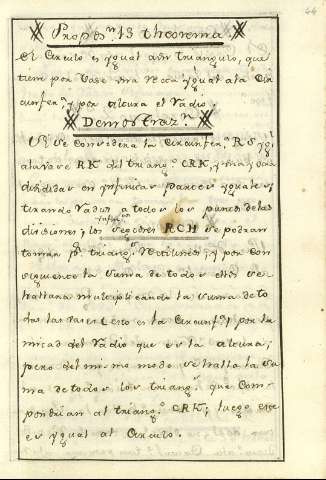 44
Propos.n 13 theorema
El Circulo es ygual a un triangulo, que
tiene por vase una recta ygual a la Cir
cunfer.a y por altura el Radio.
Demostraz.n
Si se considera la Circunfer.a RS yg.l
a la vase RK del triang.o CRK, y
divididas en ynfinitas partes yguales
tirando Radios a todos los puntos de las
divisiones, los sectores RCH se podran
tomar p.r triang.s rectilineos; y por con
siguiente la suma de todos ellos se
hallara multiplicando la suma de to
das las vases (esto es la Circunf.a) por la
mitad del Radio que es la altura;
pero del mismo modo se halla la su
ma de todos los triang.s que Com
pondrian al triang.o CRK; luego este
es ygual al Circulo.